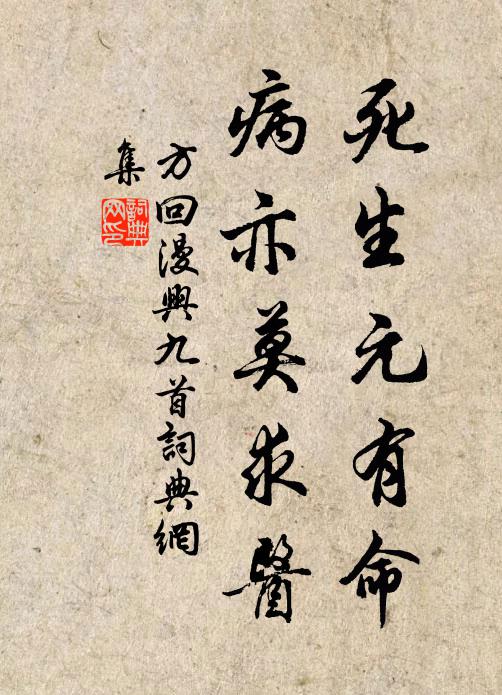 死生元有命
病亦莫求醫
方回漫興九首詞典網
集
詞典
网印